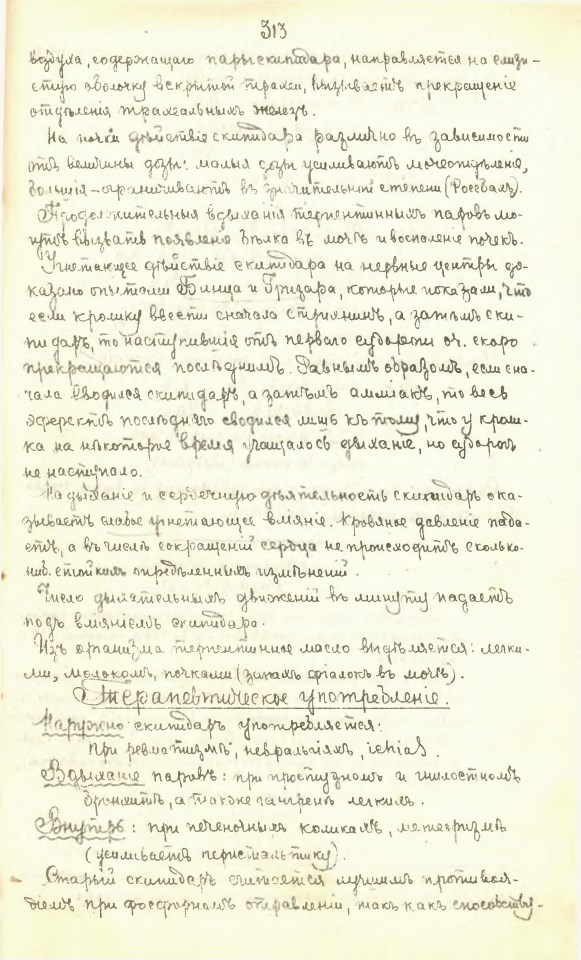 313
воздуха, содержащаго пары скипидара, направляется на слизи-
стую оболочку вскрытой трахеи, вызываетъ прекращеніе
отдѣленія трахеальныхъ железъ.
На почки дѣйствіе скипидара различно въ зависимости
отъ величины дозы: малыя дозы усиливаютъ мочеотдѣленіе,
большія – ограничиваютъ въ значительной степени (Россбахъ).
Продолжительныя вдыханія терпентинныхъ паровъ мо-
гутъ вызвать появленіе бѣлка въ мочѣ и воспаленіе почекъ.
Угнетающее дѣйствіе скипидара на нервные центры до-
казано опытами Бинца и Гризара, которые показали, что
если кролику ввести сначала стрихнинъ, а затѣмъ ски-
пидаръ, то наступившія отъ перваго судороги оч. скоро
прекращаются послѣднимъ. Равнымъ образомъ, если сна-
чала вводился скипидаръ, а затѣмъ амміакъ, то весь
эффектъ послѣдняго сводился лишь къ тому, что у кроли-
ка на нѣкоторое время учащалось дыханіе, но судорогъ
не наступало.
На дыханіе и сердечную дѣятельность скипидаръ ока-
зываетъ слабое угнетающее вліяніе. Кровяное давленіе пада-
етъ, а въ числѣ сокращеній сердца не происходитъ сколько-
ниб. стойкихъ опредѣленныхъ измѣненій.
Число дыхательныхъ движеній въ минуту падаетъ
подъ вліяніемъ скипидара.
Изъ организма терпентинное масло выдѣляется: легки-
ми, молокомъ, почками (запахъ фіалокъ въ мочѣ).
Терапевтическое употребленіе.
Наружно скипидаръ употребляется:
при ревматизмѣ, невральгіяхъ, ichias.
Вдыханіе паровъ: при простудномъ и гнилостномъ
бронхитѣ, а также гангренѣ легкихъ.
Внутрь: при печеночныхъ коликахъ, метеоризмѣ
(усиливаетъ перистальтику).
Старый скипидаръ считается лучшимъ противоя-
діемъ при фосфорномъ отравленіи, такъ какъ способству-